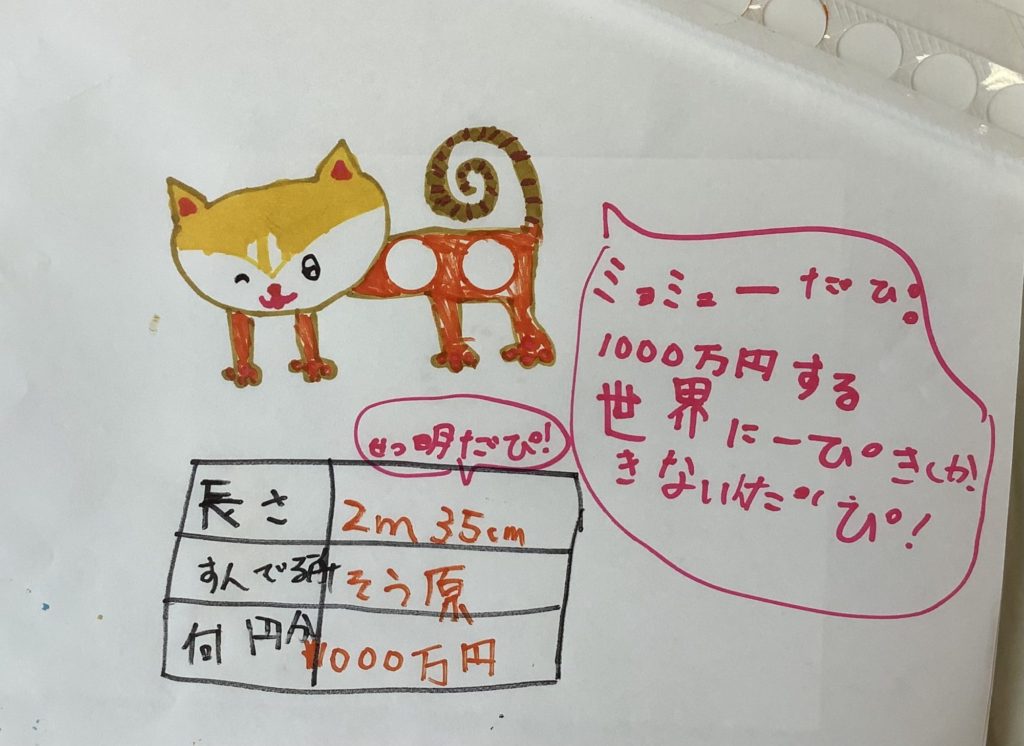 ミョミューだぴ。
1000万円する
世界に一ぴきしか
きないんだぴ!
せつ明だぴ!
長さ 2m35cm
すんでる所 そう原
何円分 ¥1000万円